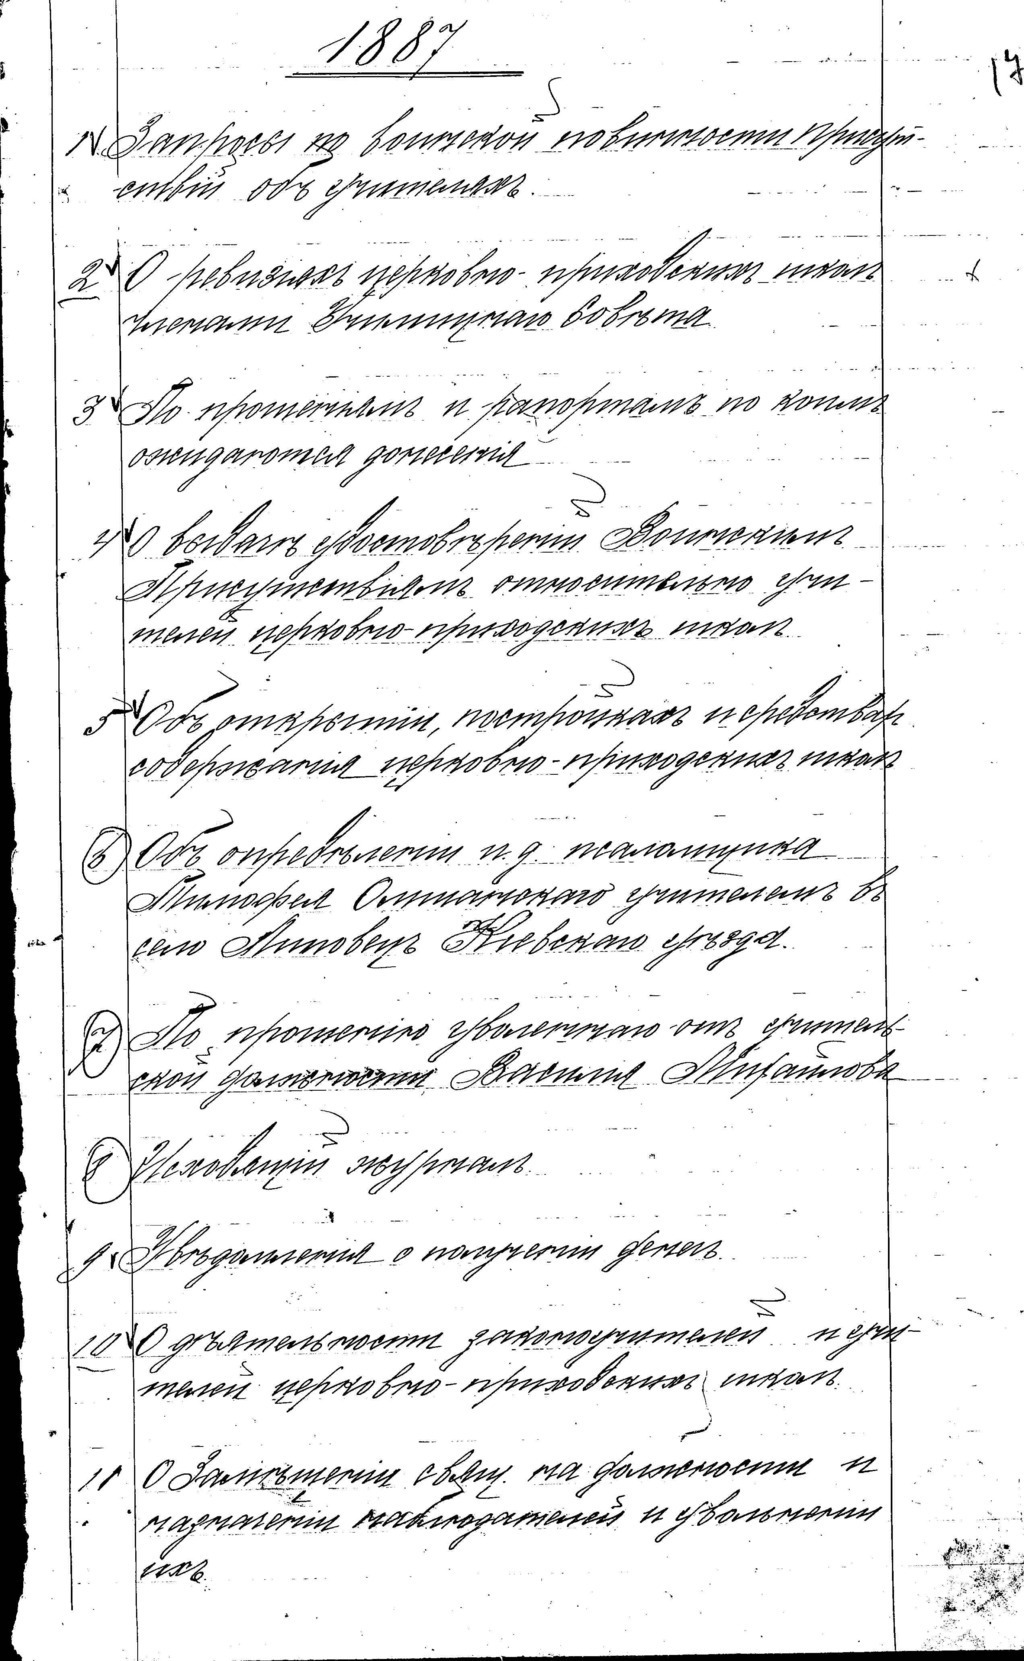 1887
17
1 Запросы по воинской повинности Присут-
ствий объ учителяхъ.
2 О ревизіяхъ церковно-приходскихъ школъ
членами Училищнаго Совѣта
3 По прошеніямъ и рапортамъ по коимъ
ожидаются донесенія
4 О выдачѣ удостовѣреній Воинскимъ
Присутствіямъ относительно учи-
телей церковно-приходскихъ школъ
5 Объ открытіи, постройкахъ и средствах
содержанія церковно-приходскихъ школъ
6 Объ опредѣленіи и. д. псаломщика
Тимофея учителемъ въ
село Липовецъ Кіевскаго уѣзда.
7 По прошенію уволеннаго отъ учитель-
ской должности Василія Михайлова
8 Исходящій журналъ
9 Увѣдомленія о полученіи денегъ
10 О дѣятельности законоучителей и учи-
телей церковно-приходскихъ школъ
11 О Замѣщеніи свящ. на должности и
назначеніи наблюдателей и увольненіи
ихъ.